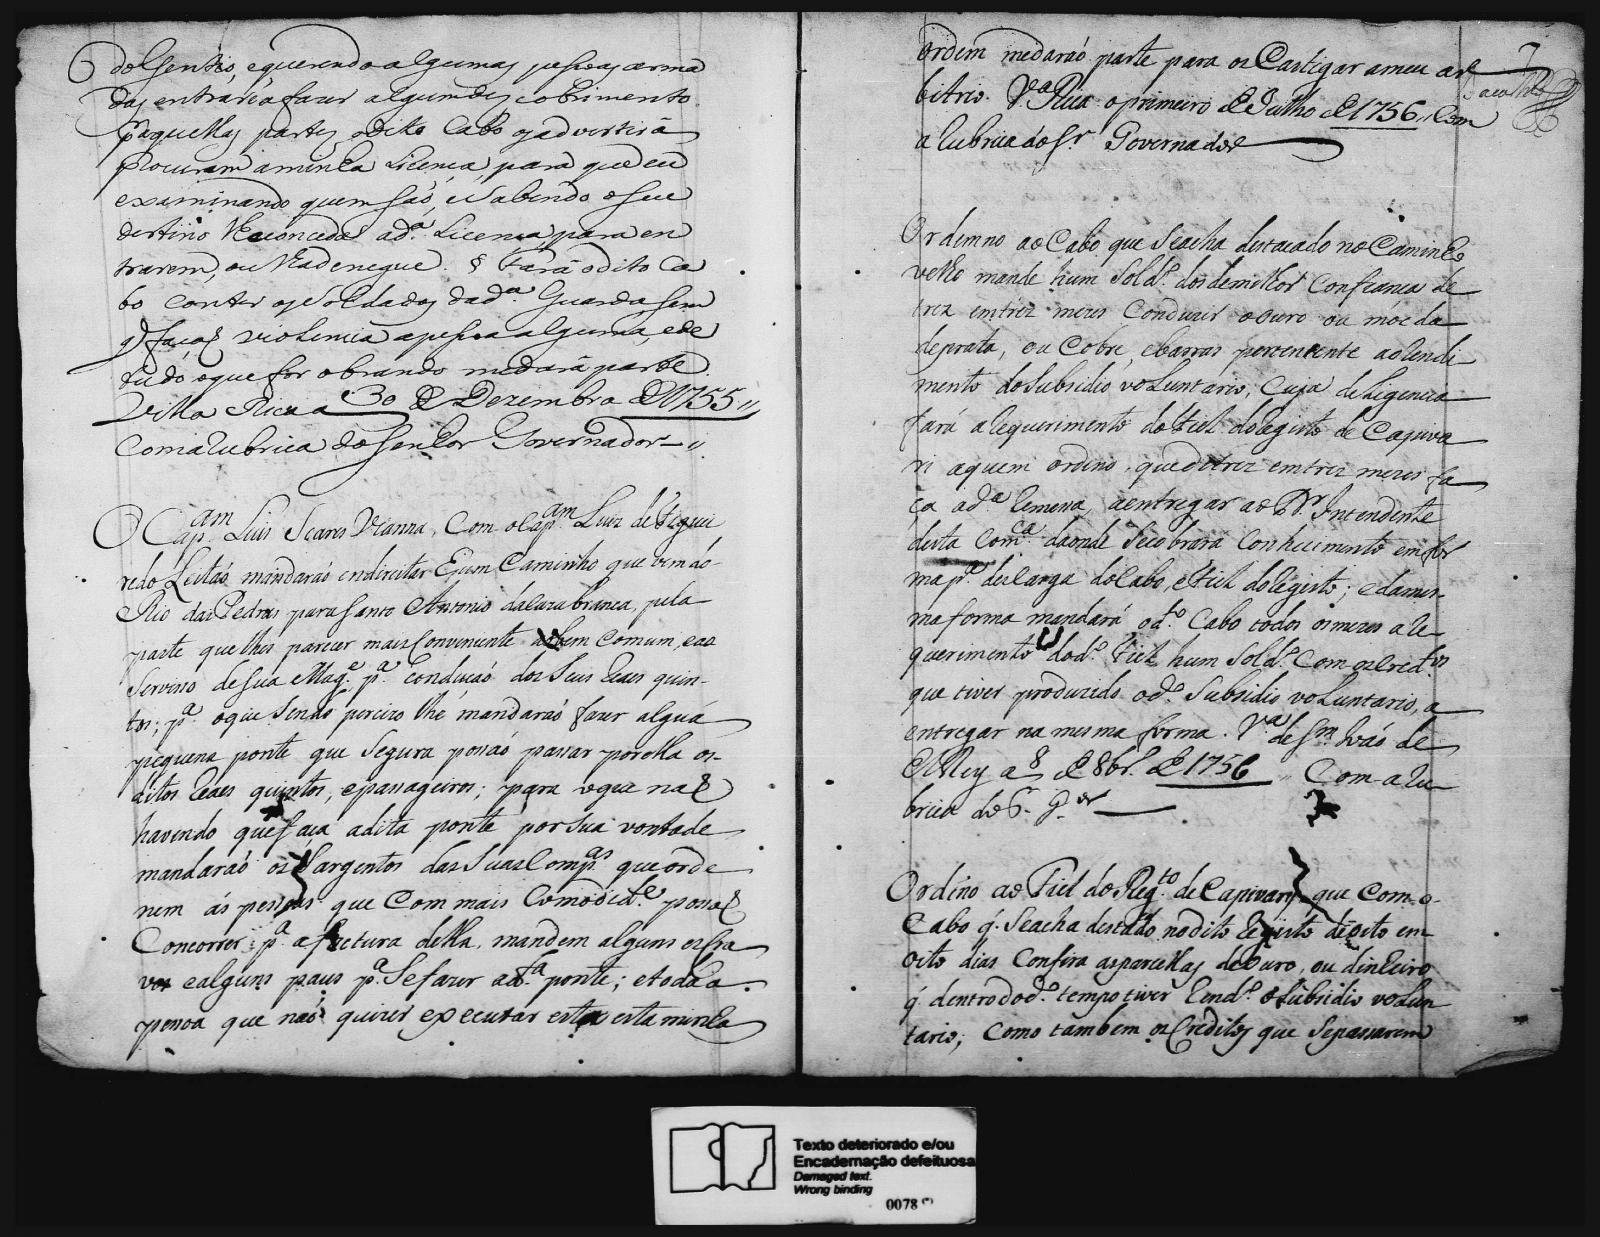 do Gentio, e querendo algumas pessoas arma
das entrar a fazer algum descobrimento
p.ª aquellas partes o dito Cabo os advertirá
procurem a minha Licença para que eu
examinando quem saó, e sabendo o seu
destino lhe conceda a d.ª Licença para en
trarem, ou lha denegue. § Fará o dito Ca
bo conter os Soldados da d.ª Guarda sem
q' façaõ violencia a pessoa alguma, e de
tudo o que for obrando me dará parte.
Villa Rica a 30 de Dezembro de 1755 //
Com a rubrica do Senhor Governador //
O Cap.am Luis Soares Vianna, Com o Cap.am Luiz de Figuei
redo Leitaó mandaraó endireitar hum Caminho que vem do
Rio das Pedras para Santo Antonio da Caza branca, pela
parte que lhes parecer mais conveniente ao bem comum, e ao
Serviso de Sua Mag.e p.ª conduçaó dos Seus Reaes quin-
tos; p.ª o que sendo percizo lhe mandaraó fazer alguá
piquena ponte que segura posaó passar por ella os
ditos Reaes quintos, e passageiros; para o que naõ
havendo quem faça a dita ponte por sua vontade
mandaraó os Sargentos das suas Comp.as que orde
nem ás pessoas que Com mais Comodid.e possaõ
Concorrer p.ª a factura della, mandem alguns escra
vos e alguns paus p.ª Se fazer a d.ta ponte; e toda a
pessoa que naó quizer executar esta minha
7
ordem me daraó parte para os Castigar a meu ar
bitrio. V.ª Rica o primeiro de Julho de 1756 // Com
a rubrica do S.r Governador
Ordemno ao Cabo que se acha destacado no Caminho
velho mande hum Sold.º dos de milhor Confiança de
trez em trez mezes Conduzir o ouro ou moeda
de prata, ou Cobre, e barras pertencente ao rendi
mento do Subsidio voluntario, Cuja deligencia
fará a requerimento do Fiel do registo de Capiva
ri a quem ordino, que de trez em trez mezes fa
ça a d.ª remessa, a entregar ao D.r Intendente
desta Com.ca daonde se cobrará Conhecimento em for
ma p.ª descarga do Cabo, e Fiel do registo; e da mes-
ma forma mandará o d.º Cabo todos os mezes a re
querimento do d.º Fiel hum Sold.º Com os cred.tos
que tiver produzido o d.º Subsidio voluntario, a
entregar na mesma forma. V.ª de S.m Joáo de
El Rey a 8 de 8br.º de 1756 // Com a ru
brica do S.r G.or
Ordino ao Fiel do Reg.to de Capivary que Com o
Cabo q' Se acha destacado no dito registo de oito em
oito dias Confira as parcellas de ouro, ou dinheiro
q' dentro do d.º tempo tiver rend.º o Subsidio volun
tario; como tambem os Creditos que Se passarem
Texto deteriorado e/ou
Encadernação defeituosa
Damaged text.
Wrong binding
0078